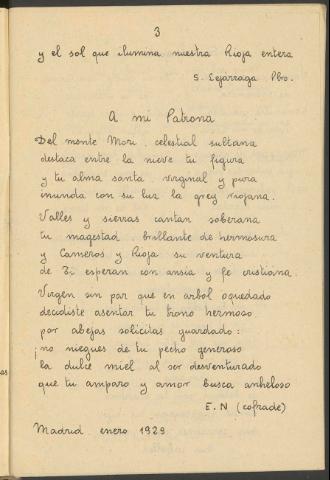 3
y el sol que ilumina nuestra Rioja entera
S. Lejárraga Pbo.
A mi Patrona
Del monte Mori celestial sultana
destaca entre la nieve tu figura
y tu alma santa virginal y pura
inunda con su luz la grey riojana.
Valles y sierras cantan soberana
tu magestad brillante de hermosura
y Cameros y Rioja su ventura
de Ti esperan con ansia y fe cristiana.
Virgen sin par que en arbol oquedado
decidiste asentar tu trono hermoso
por abejas solicitas guardado:
¡no niegues de tu pecho generoso
la dulce miel al ser desventurado
que tu amparo y amor busca anheloso
E. N (cofrade)
Madrid enero 1929